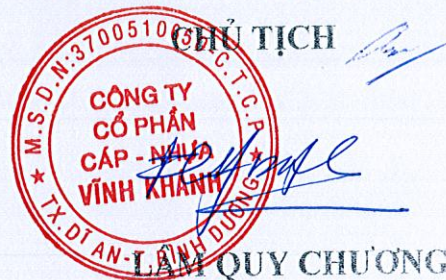 CHỦ TỊCH
M.S.D.N:3700510050-C.T.C.P
CÔNG TY
CỔ PHẦN
CÁP - NHỰA
VĨNH KHÁNH
TX.DĨ AN-T.BÌNH DƯƠNG
LÂM QUY CHƯƠNG